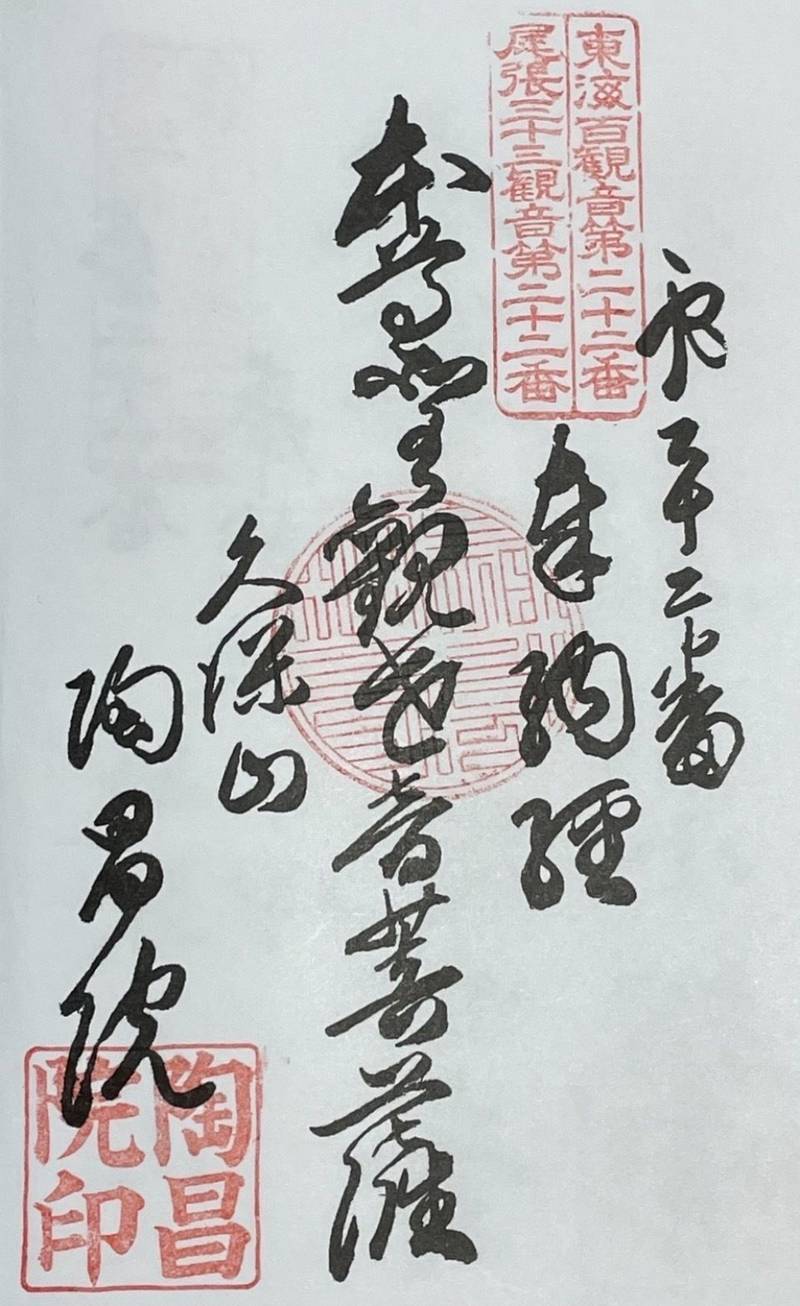 東海百観音第二十二番
尾張三十三観音第二十二番
二十二番
奉納経
本尊聖観世音菩薩
陶昌院
陶昌院印